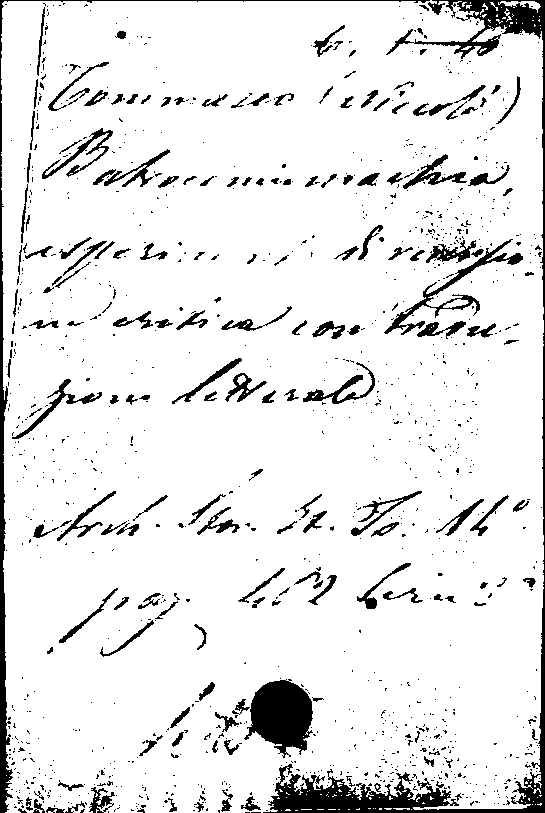 Tommaseo (Niccolò)
Batracomiomachia,
esperim di revisio-
ne critica con tradu-
zione letterale
Arch. Stor. It. To. 14°
pag. 462 Serie 3ª